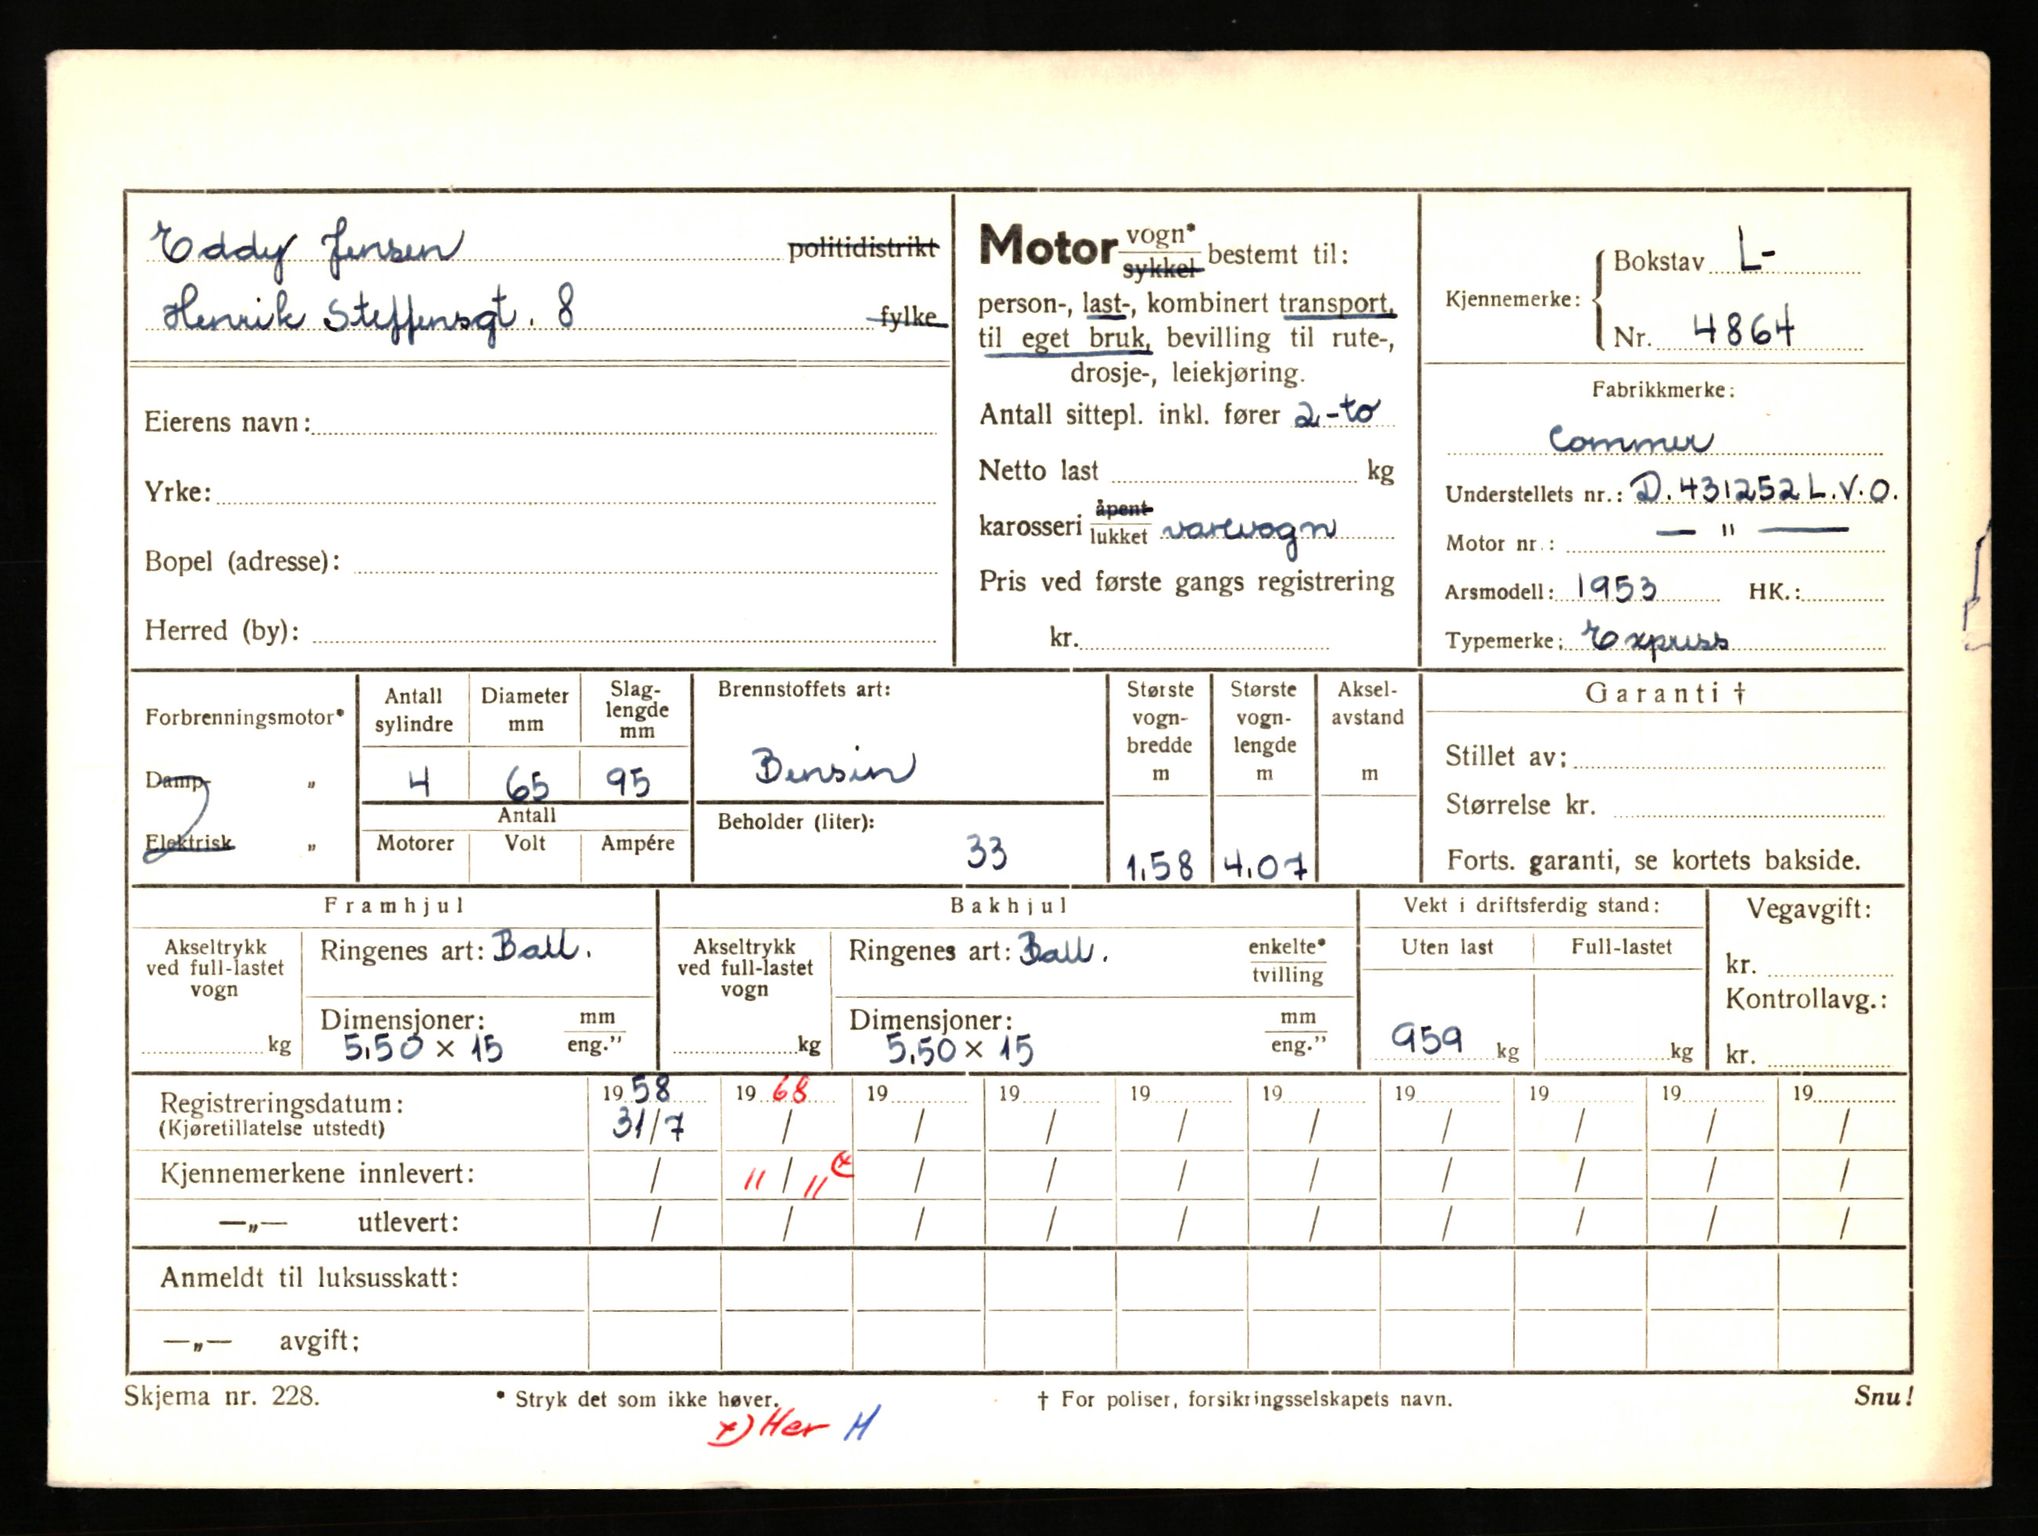 Eddy Jensen politidistrikt
Henrik Steffensgt. 8 fylke
Eierens navn:
Yrke:
Bopel (adresse):
Herred (by):
Motor vogn* sykkel bestemt til:
person-, last-, kombinert transport,
til eget bruk, bevilling til rute-,
drosje-, leiekjøring.
Antall sittepl. inkl. fører 2-to
Netto last kg
karosseri åpent lukket varevogn
Pris ved første gangs registrering
kr.
Kjennemerke: Bokstav L-
Nr. 4864
Fabrikkmerke:
Commer
Understellets nr.: D.431252 L.V.O.
Motor nr.: — " —
Arsmodell: 1953 HK.:
Typemerke: Express
Forbrenningsmotor*
Damp- „
Elektrisk „
Antall sylindre
Diameter mm
Slag-lengde mm
4 65 95
Antall
Motorer Volt Ampére
Brennstoffets art:
Bensin
Beholder (liter):
33
Største vogn-bredde m
1.58
Største vogn-lengde m
4.07
Aksel-avstand m
Garanti †
Stillet av:
Størrelse kr.
Forts. garanti, se kortets bakside.
Framhjul
Akseltrykk
ved full-lastet
vogn
kg
Ringenes art: Ball.
Dimensjoner: mm
5,50 x 15 eng."
Bakhjul
Akseltrykk
ved full-lastet
vogn
kg
Ringenes art: Ball. enkelte*
tvilling
Dimensjoner: mm
5,50 x 15 eng."
Vekt i driftsferdig stand:
Uten last Full-lastet
959 kg kg
Vegavgift:
kr.
Kontrollavg.:
kr.
Registreringsdatum: 19 58 19 68 19 19 19 19 19 19 19 19
(Kjøretillatelse utstedt) 31/7 / / / / / / / / /
Kjennemerkene innlevert: / " / " x) / / / / / / / /
—„— utlevert: / / / / / / / / / /
Anmeldt til luksusskatt:
—„— avgift:
Skjema nr. 228. * Stryk det som ikke høver. † For poliser, forsikringsselskapets navn. Snu!
x) Her H